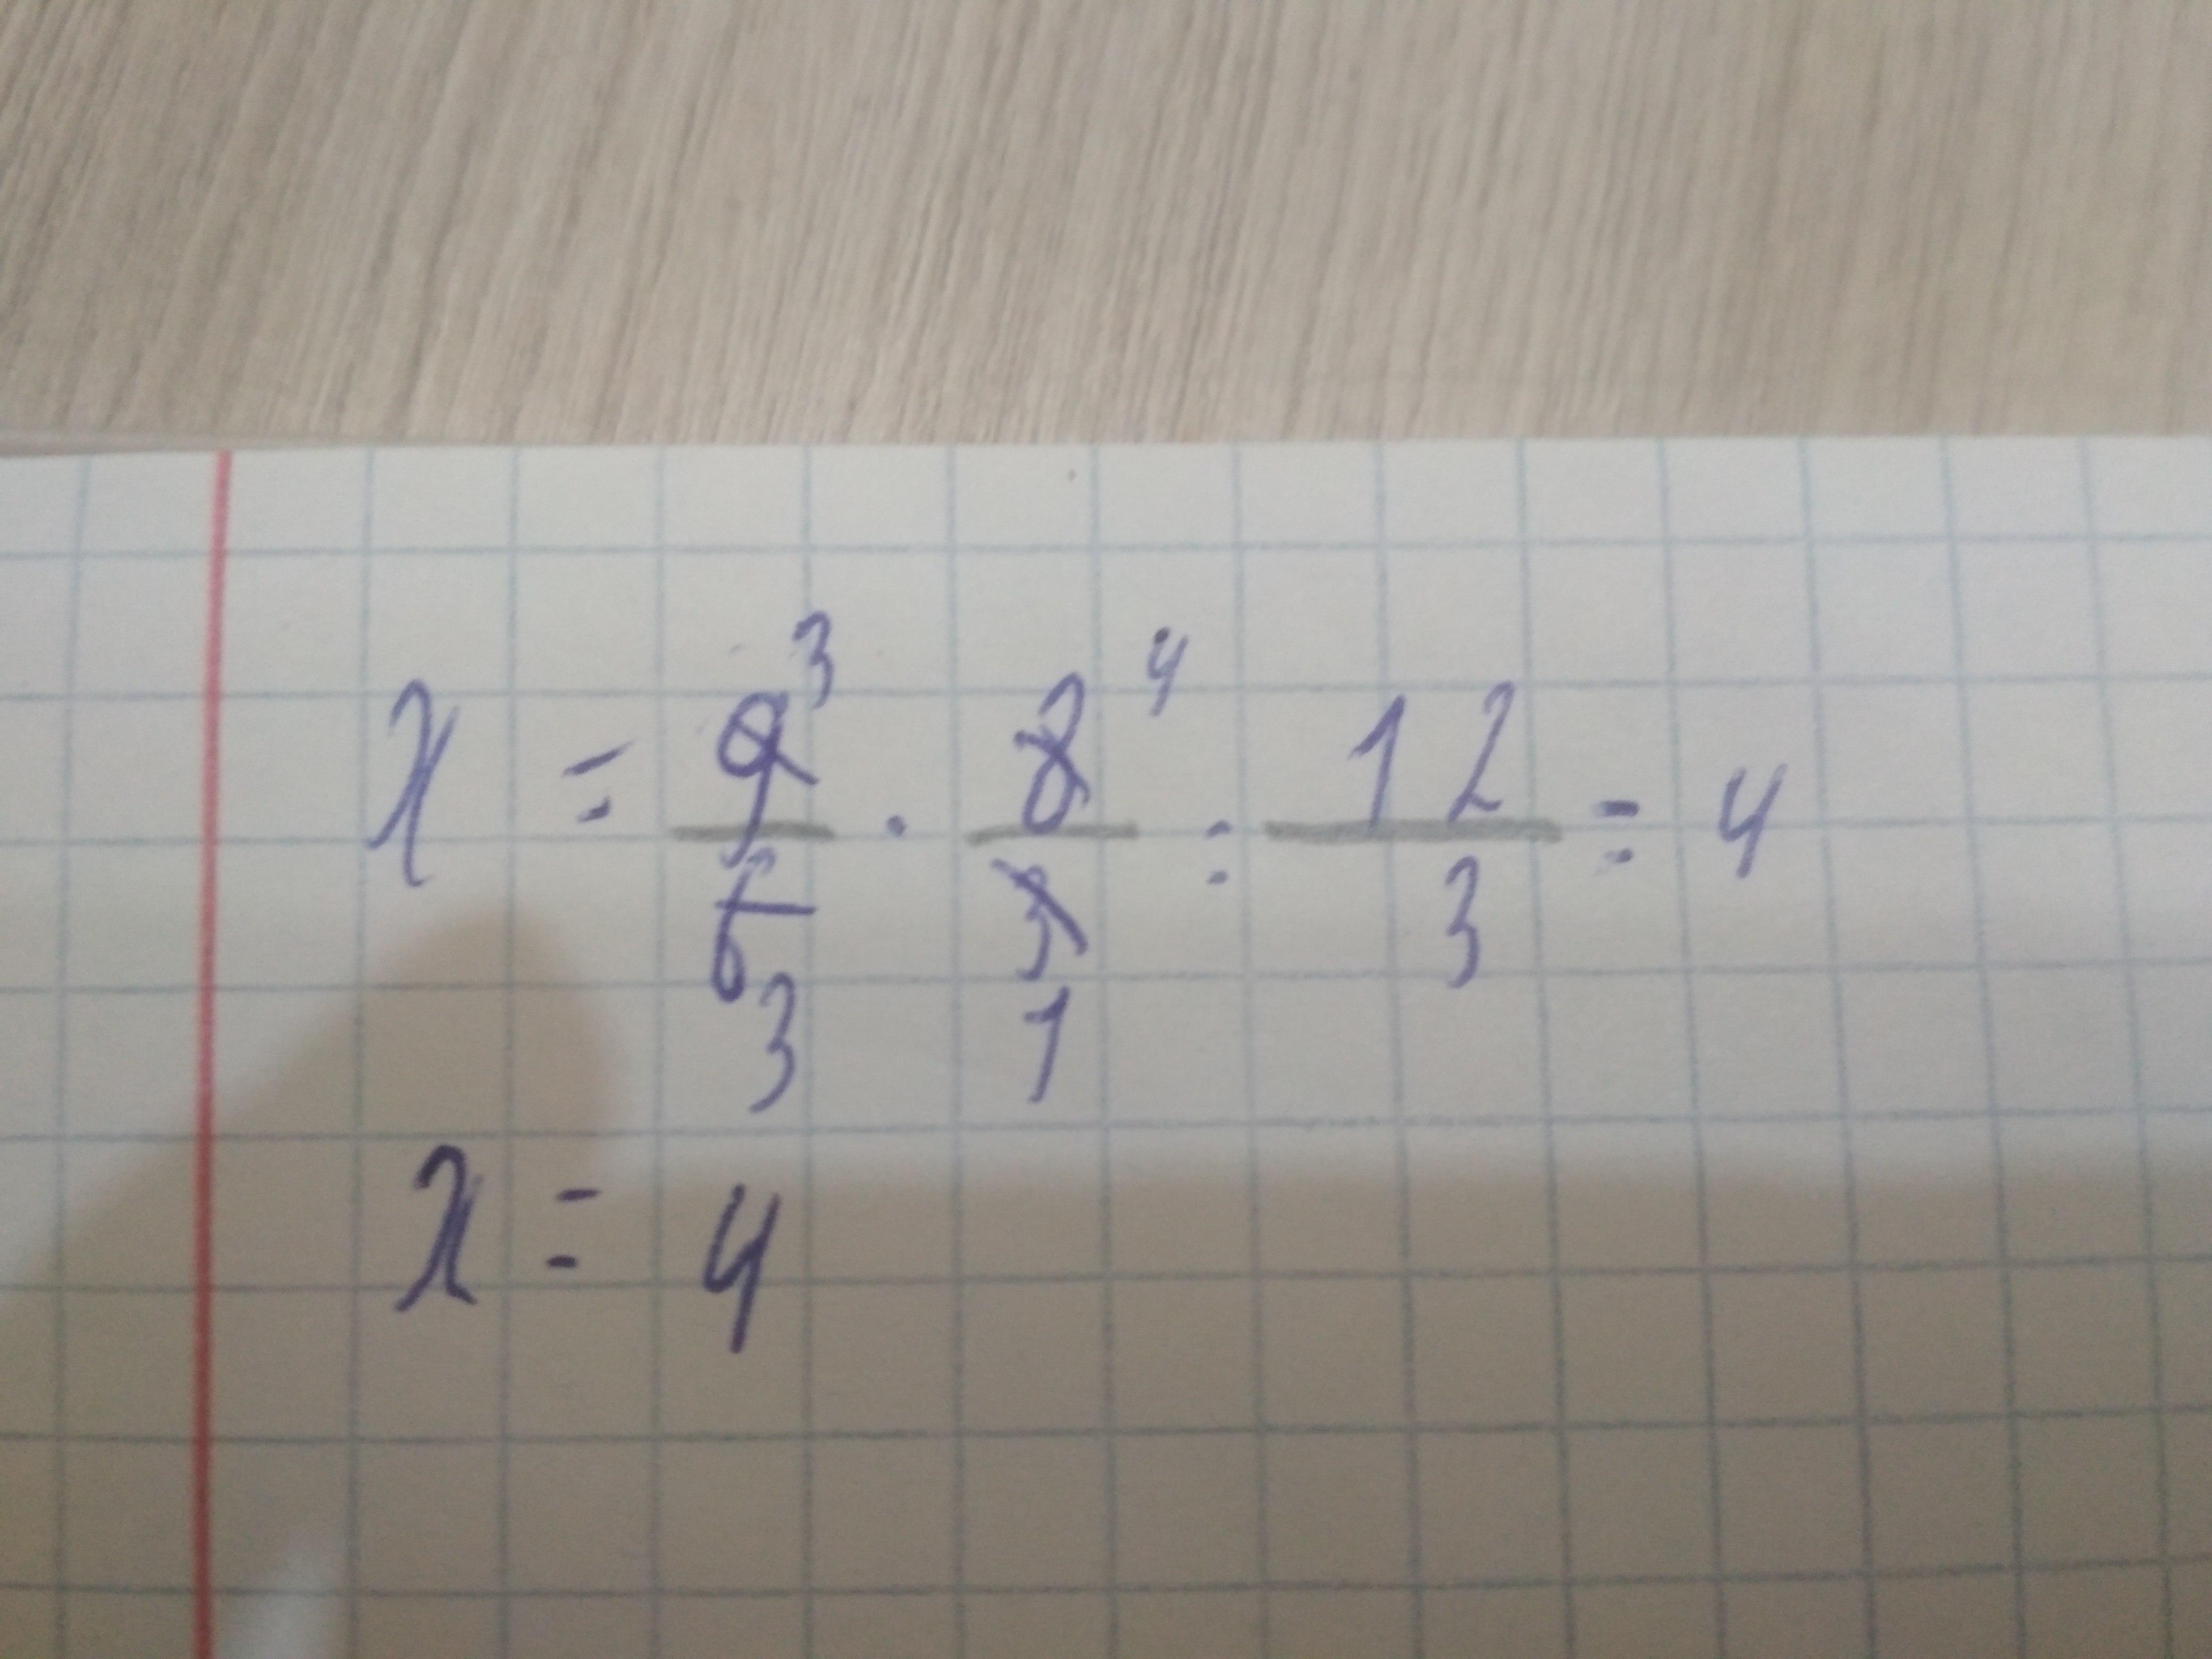 x = 9³/6 3 · 8⁴/3 1 = 12/3 = 4
x = 4